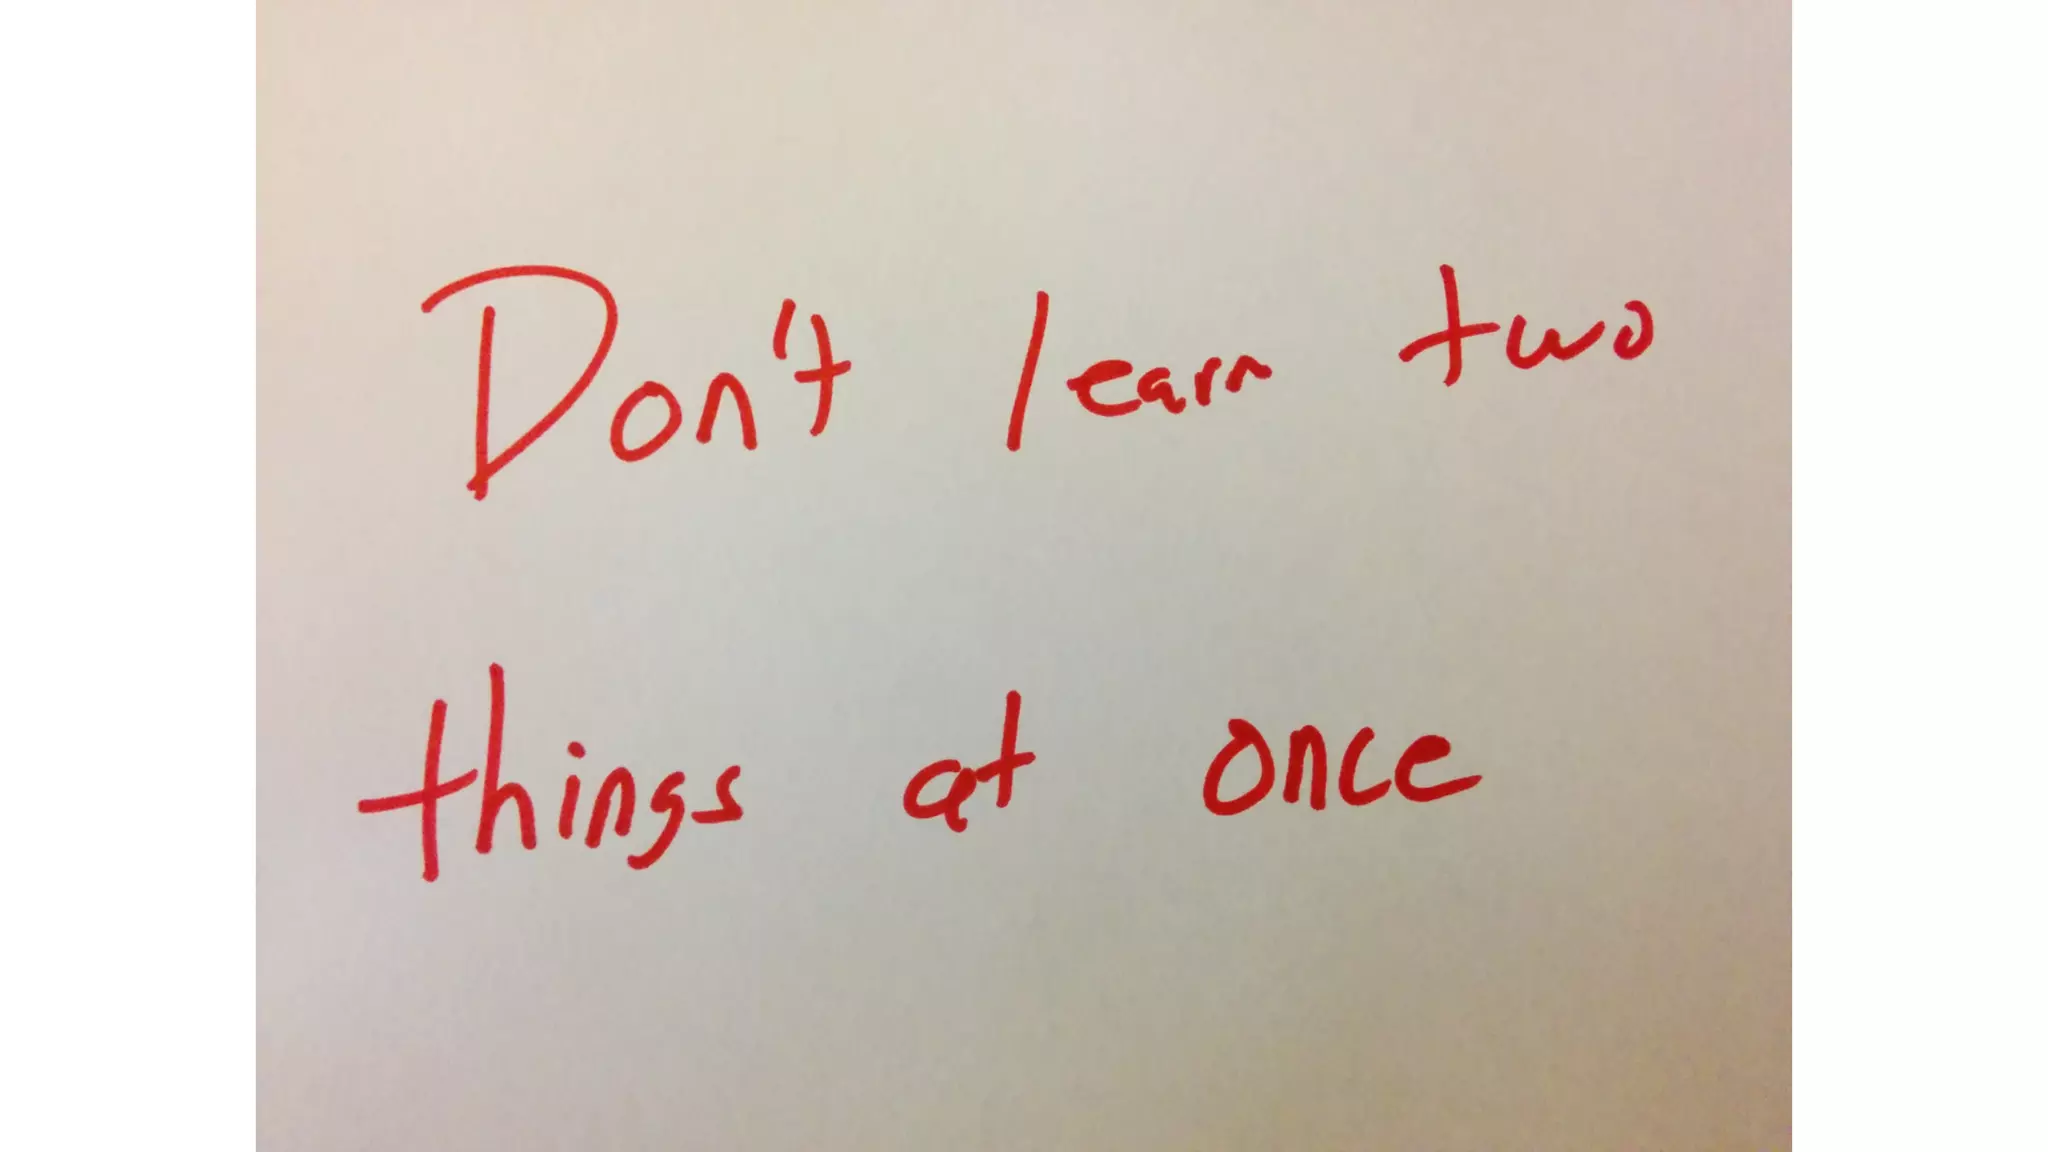 Don't learn two
things at once